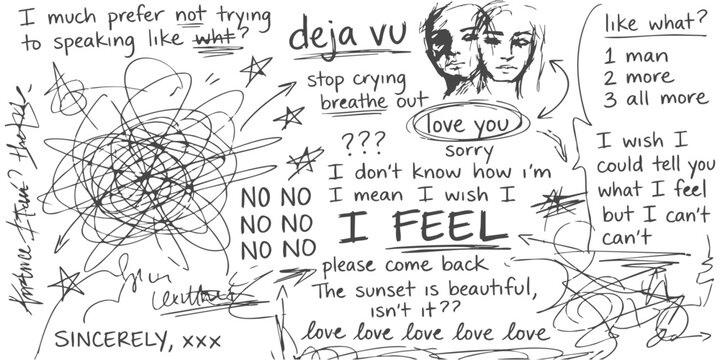 I much prefer not trying
to speaking like wht?
deja vu
stop crying
breathe out
love you
sorry
???
I don't know how i'm
I mean I wish I
NO NO
NO NO
NO NO
I FEEL
please come back
The sunset is beautiful,
isn't it??
love love love love love
like what?
1 man
2 more
3 all more
I wish I
could tell you
what I feel
but I can't
can't
SINCERELY, xxx